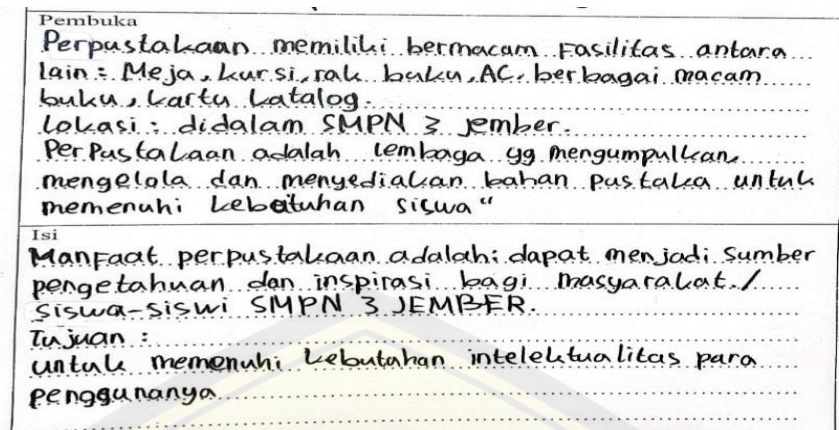 Pembuka
Perpustakaan memiliki bermacam Fasilitas antara
lain : Meja, kursi, rak buku, AC, berbagai macam
buku, kartu katalog.
Lokasi : didalam SMPN 3 Jember.
Perpustakaan adalah lembaga yg mengumpulkan,
mengelola dan menyediakan bahan pustaka untuk
memenuhi kebutuhan siswa"
Isi
Manfaat perpustakaan adalah : dapat menjadi sumber
pengetahuan dan inspirasi bagi masyarakat /
siswa-siswi SMPN 3 JEMBER.
Tujuan :
untuk memenuhi kebutahan intelektualitas para
penggunanya